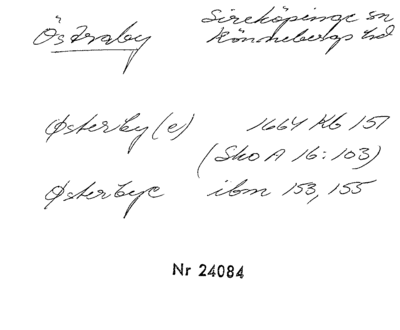 Östraby Sireköpinge sn
Rönnebergs hd
Østerby(e) 1664 Kb 151
(SkoA 16:103)
Østerbye ibm 153, 155
Nr 24084